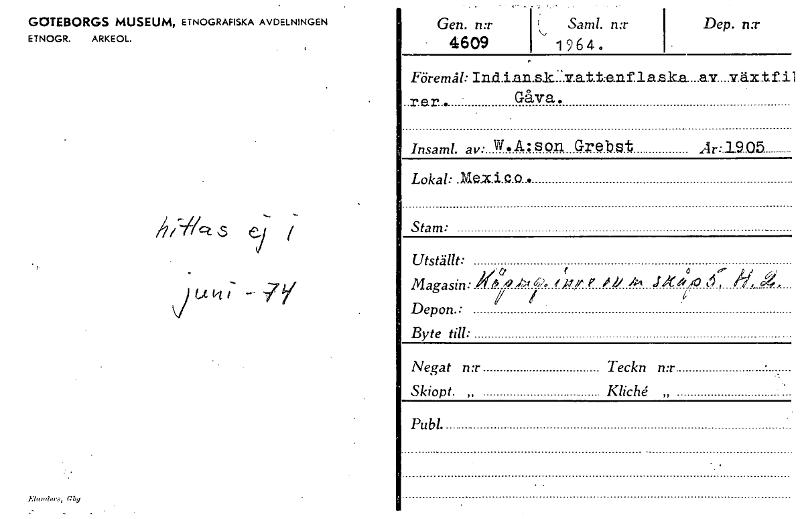 GÖTEBORGS MUSEUM, ETNOGRAFISKA AVDELNINGEN
ETNOGR. ARKEOL.
hittas ej i
juni - 74
Elanders, Gbg
Gen. n:r Saml. n:r Dep. n:r
4609 1964.
Föremål: Indiansk vattenflaska av växtfi
rer. Gåva.
Insaml. av: W.A:son Grebst År: 1905
Lokal: Mexico.
Stam:
Utställt:
Magasin: inre rum skåp 5. H. 2.
Depon.:
Byte till:
Negat n:r Teckn n:r
Skiopt. „ Kliché „
Publ.